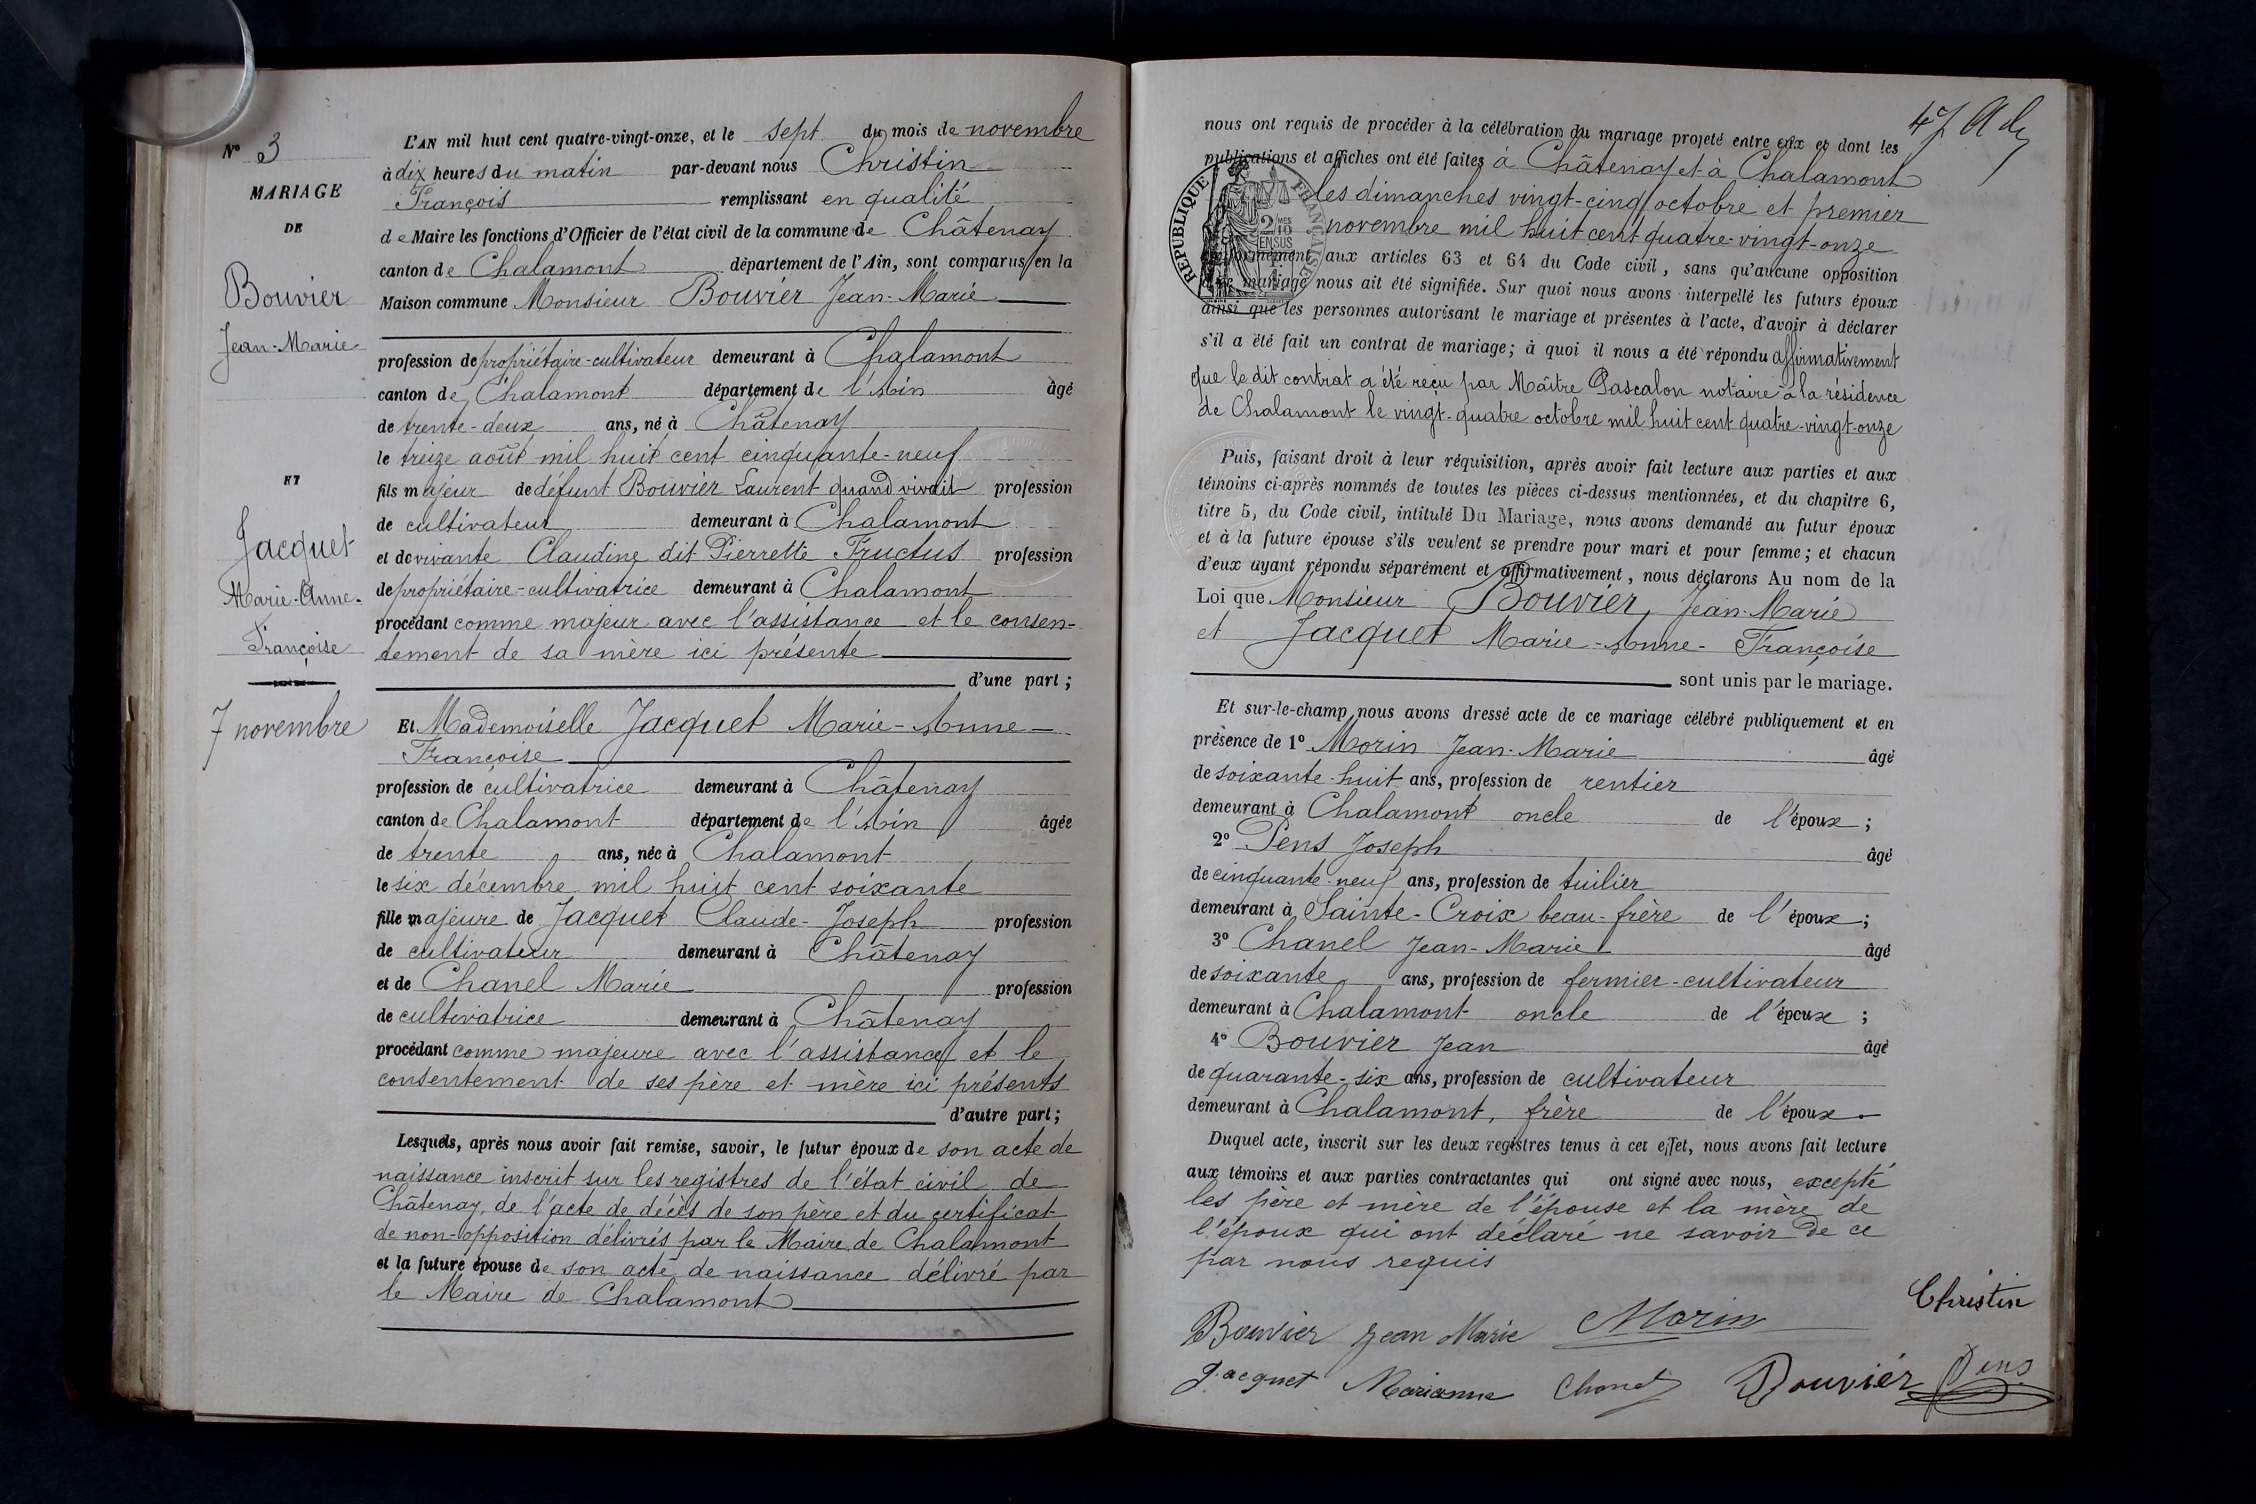 N° 3
MARIAGE
DE
Bouvier
Jean-Marie
ET
Jacquet
Marie-Anne-
Françoise
7 novembre
L'AN mil huit cent quatre-vingt-onze, et le sept du mois de novembre
à dix heures du matin par-devant nous Christin
François remplissant en qualité
de Maire les fonctions d'Officier de l'état civil de la commune de Châtenay
canton de Chalamont département de l'Ain, sont comparus en la
Maison commune Monsieur Bouvier Jean-Marie
profession de propriétaire-cultivateur demeurant à Chalamont
canton de Chalamont département de l'Ain âgé
de trente-deux ans, né à Châtenay
le treize août mil huit cent cinquante-neuf
fils majeur de défunt Bouvier Laurent quand vivait profession
de cultivateur demeurant à Chalamont
et de vivante Claudine dit Pierrette Fructus profession
de propriétaire-cultivatrice demeurant à Chalamont
procédant comme majeur avec l'assistance et le consen-
tement de sa mère ici présente
d'une part;
Et Mademoiselle Jacquet Marie-Anne-
Françoise
profession de cultivatrice demeurant à Châtenay
canton de Chalamont département de l'Ain âgée
de trente ans, née à Chalamont
le six décembre mil huit cent soixante
fille majeure de Jacquet Claude-Joseph profession
de cultivateur demeurant à Châtenay
et de Chanel Marie profession
de cultivatrice demeurant à Châtenay
procédant comme majeure avec l'assistance et le
consentement de ses père et mère ici présents
d'autre part;
Lesquels, après nous avoir fait remise, savoir, le futur époux de son acte de
naissance inscrit sur les registres de l'état civil de
Châtenay, de l'acte de décès de son père et du certificat
de non-opposition délivrés par le Maire de Chalamont
et la future épouse de son acte de naissance délivré par
le Maire de Chalamont
47
nous ont requis de procéder à la célébration du mariage projeté entre eux et dont les
publications et affiches ont été faites à Châtenay et à Chalamont
les dimanches vingt-cinq octobre et premier
novembre mil huit cent quatre-vingt-onze
RÉPUBLIQUE FRANÇAISE
2/10 EN SUS
conformément aux articles 63 et 64 du Code civil, sans qu'aucune opposition
mariage nous ait été signifiée. Sur quoi nous avons interpellé les futurs époux
ainsi que les personnes autorisant le mariage et présentes à l'acte, d'avoir à déclarer
s'il a été fait un contrat de mariage; à quoi il nous a été répondu affirmativement
que le dit contrat a été reçu par Maître Pascalon notaire à la résidence
de Chalamont le vingt-quatre octobre mil huit cent quatre-vingt-onze
Puis, faisant droit à leur réquisition, après avoir fait lecture aux parties et aux
témoins ci-après nommés de toutes les pièces ci-dessus mentionnées, et du chapitre 6,
titre 5, du Code civil, intitulé Du Mariage, nous avons demandé au futur époux
et à la future épouse s'ils veulent se prendre pour mari et pour femme; et chacun
d'eux ayant répondu séparément et affirmativement, nous déclarons Au nom de la
Loi que Monsieur Bouvier, Jean-Marie
et Jacquet Marie-Anne-Françoise
sont unis par le mariage.
Et sur-le-champ nous avons dressé acte de ce mariage célébré publiquement et en
présence de 1° Morin Jean-Marie âgé
de soixante-huit ans, profession de rentier
demeurant à Chalamont oncle de l'époux;
2° Pens Joseph âgé
de cinquante-neuf ans, profession de tuilier
demeurant à Sainte-Croix beau-frère de l'époux;
3° Chanel Jean-Marie âgé
de soixante ans, profession de fermier-cultivateur
demeurant à Chalamont oncle de l'épouse;
4° Bouvier Jean âgé
de quarante-six ans, profession de cultivateur
demeurant à Chalamont, frère de l'époux
Duquel acte, inscrit sur les deux registres tenus à cet effet, nous avons fait lecture
aux témoins et aux parties contractantes qui ont signé avec nous, excepté
les père et mère de l'épouse et la mère de
l'époux qui ont déclaré ne savoir de ce
par nous requis
Christin
Bouvier Jean Marie Morin
Jacquet Marianne Chanel Bouvier Pens